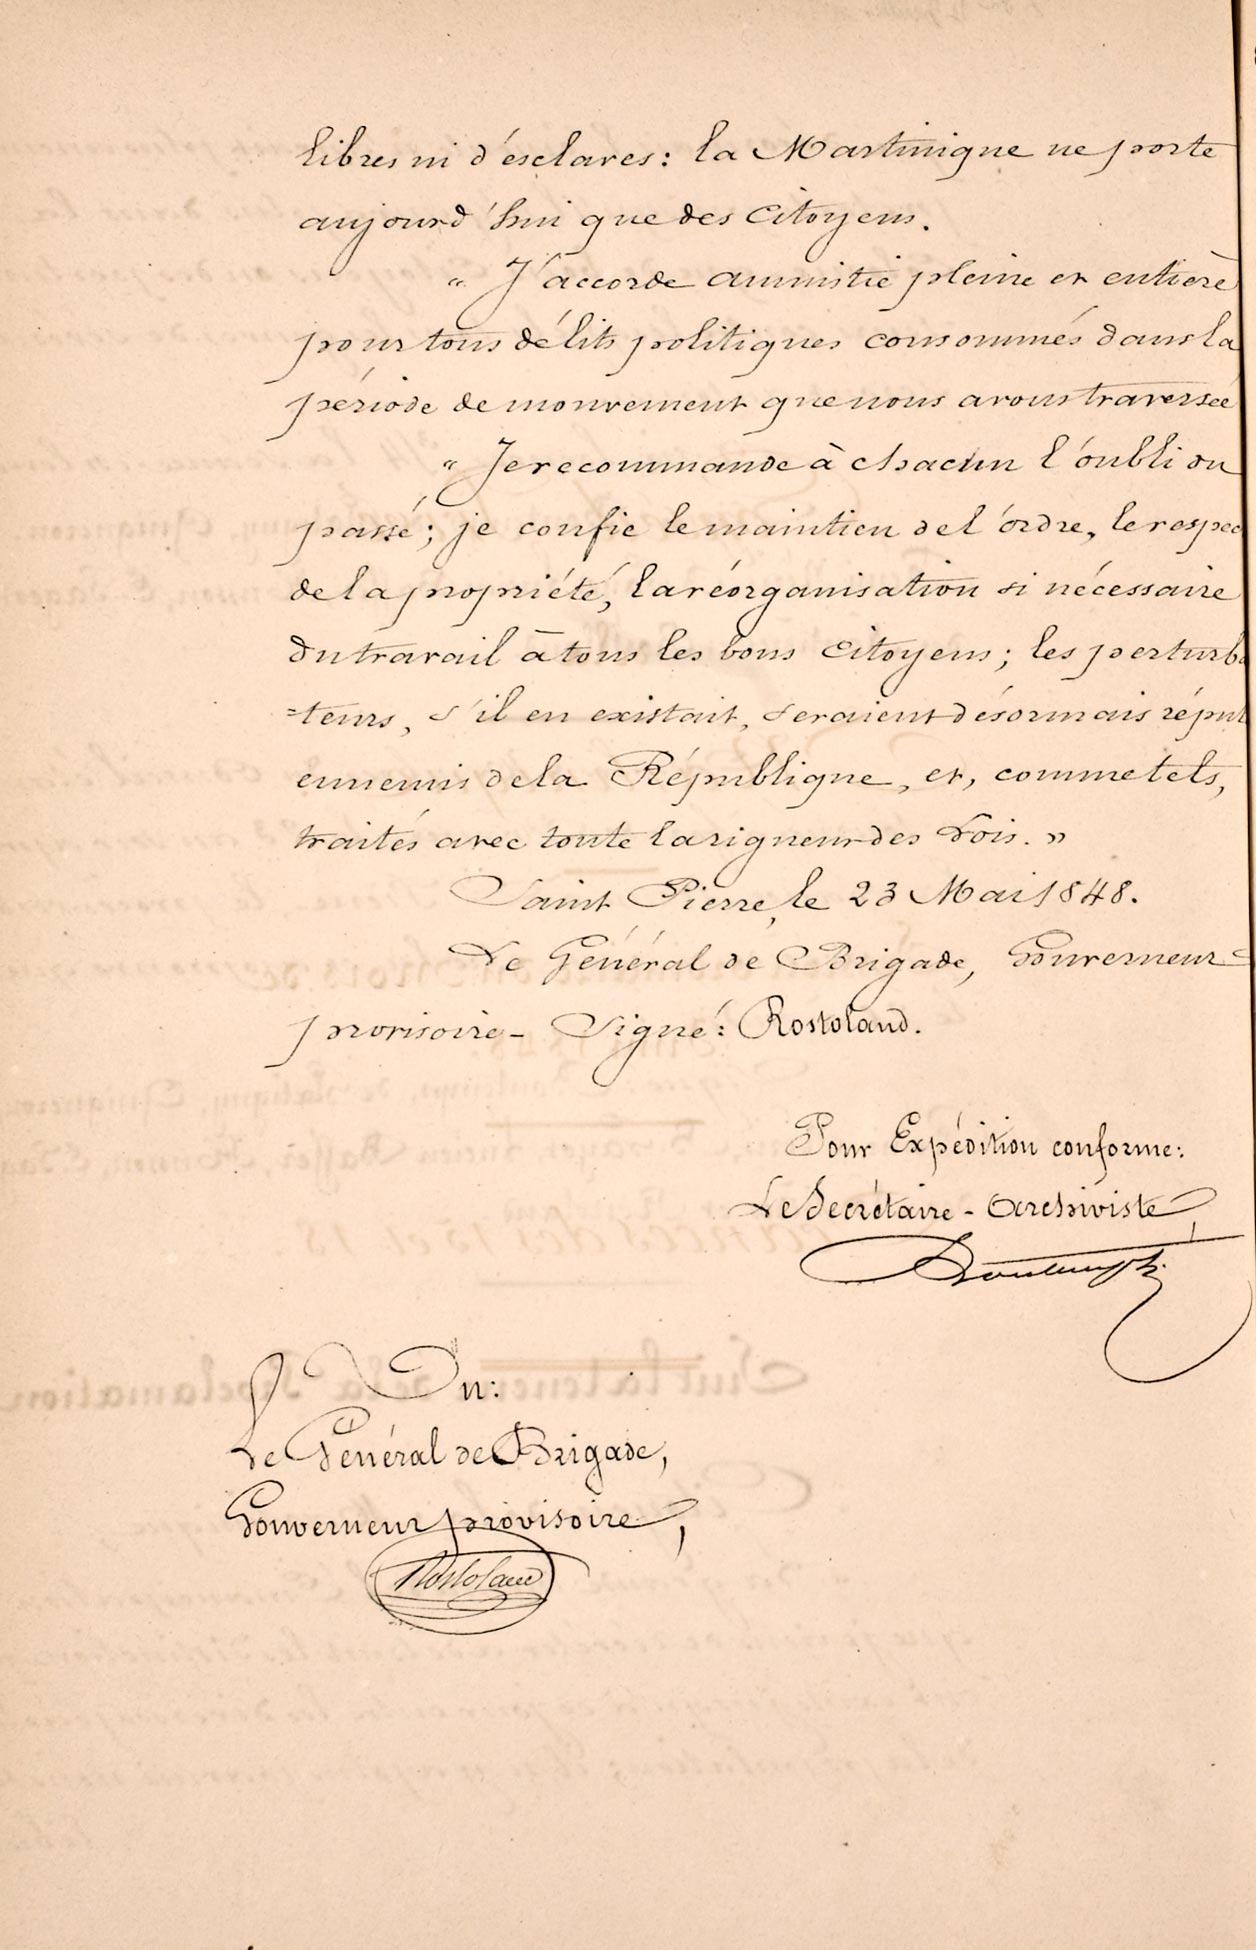 libres ni d'esclaves : la Martinique ne porte
aujourd'hui que des Citoyens.
" J'accorde amnistie pleine et entière
pour tous délits politiques consommés dans la
période de mouvement que nous avons traversée
" Je recommande à chacun l'oubli du
passé ; je confie le maintien de l'ordre, le respec
de la propriété, la réorganisation si nécessaire
du travail à tous les bons Citoyens ; les perturba
=teurs, s'il en existait, seraient désormais réput
ennemis de la République, et, comme tels,
traités avec toute la rigueur des Lois. "
Saint Pierre, le 23 Mai 1848.
Le Général de Brigade, Gouverneur
provisoire - Signé : Rostoland.
Pour Expédition conforme :
Le Secrétaire - Archiviste,
Vu :
Le Général de Brigade,
Gouverneur provisoire,
Rostoland